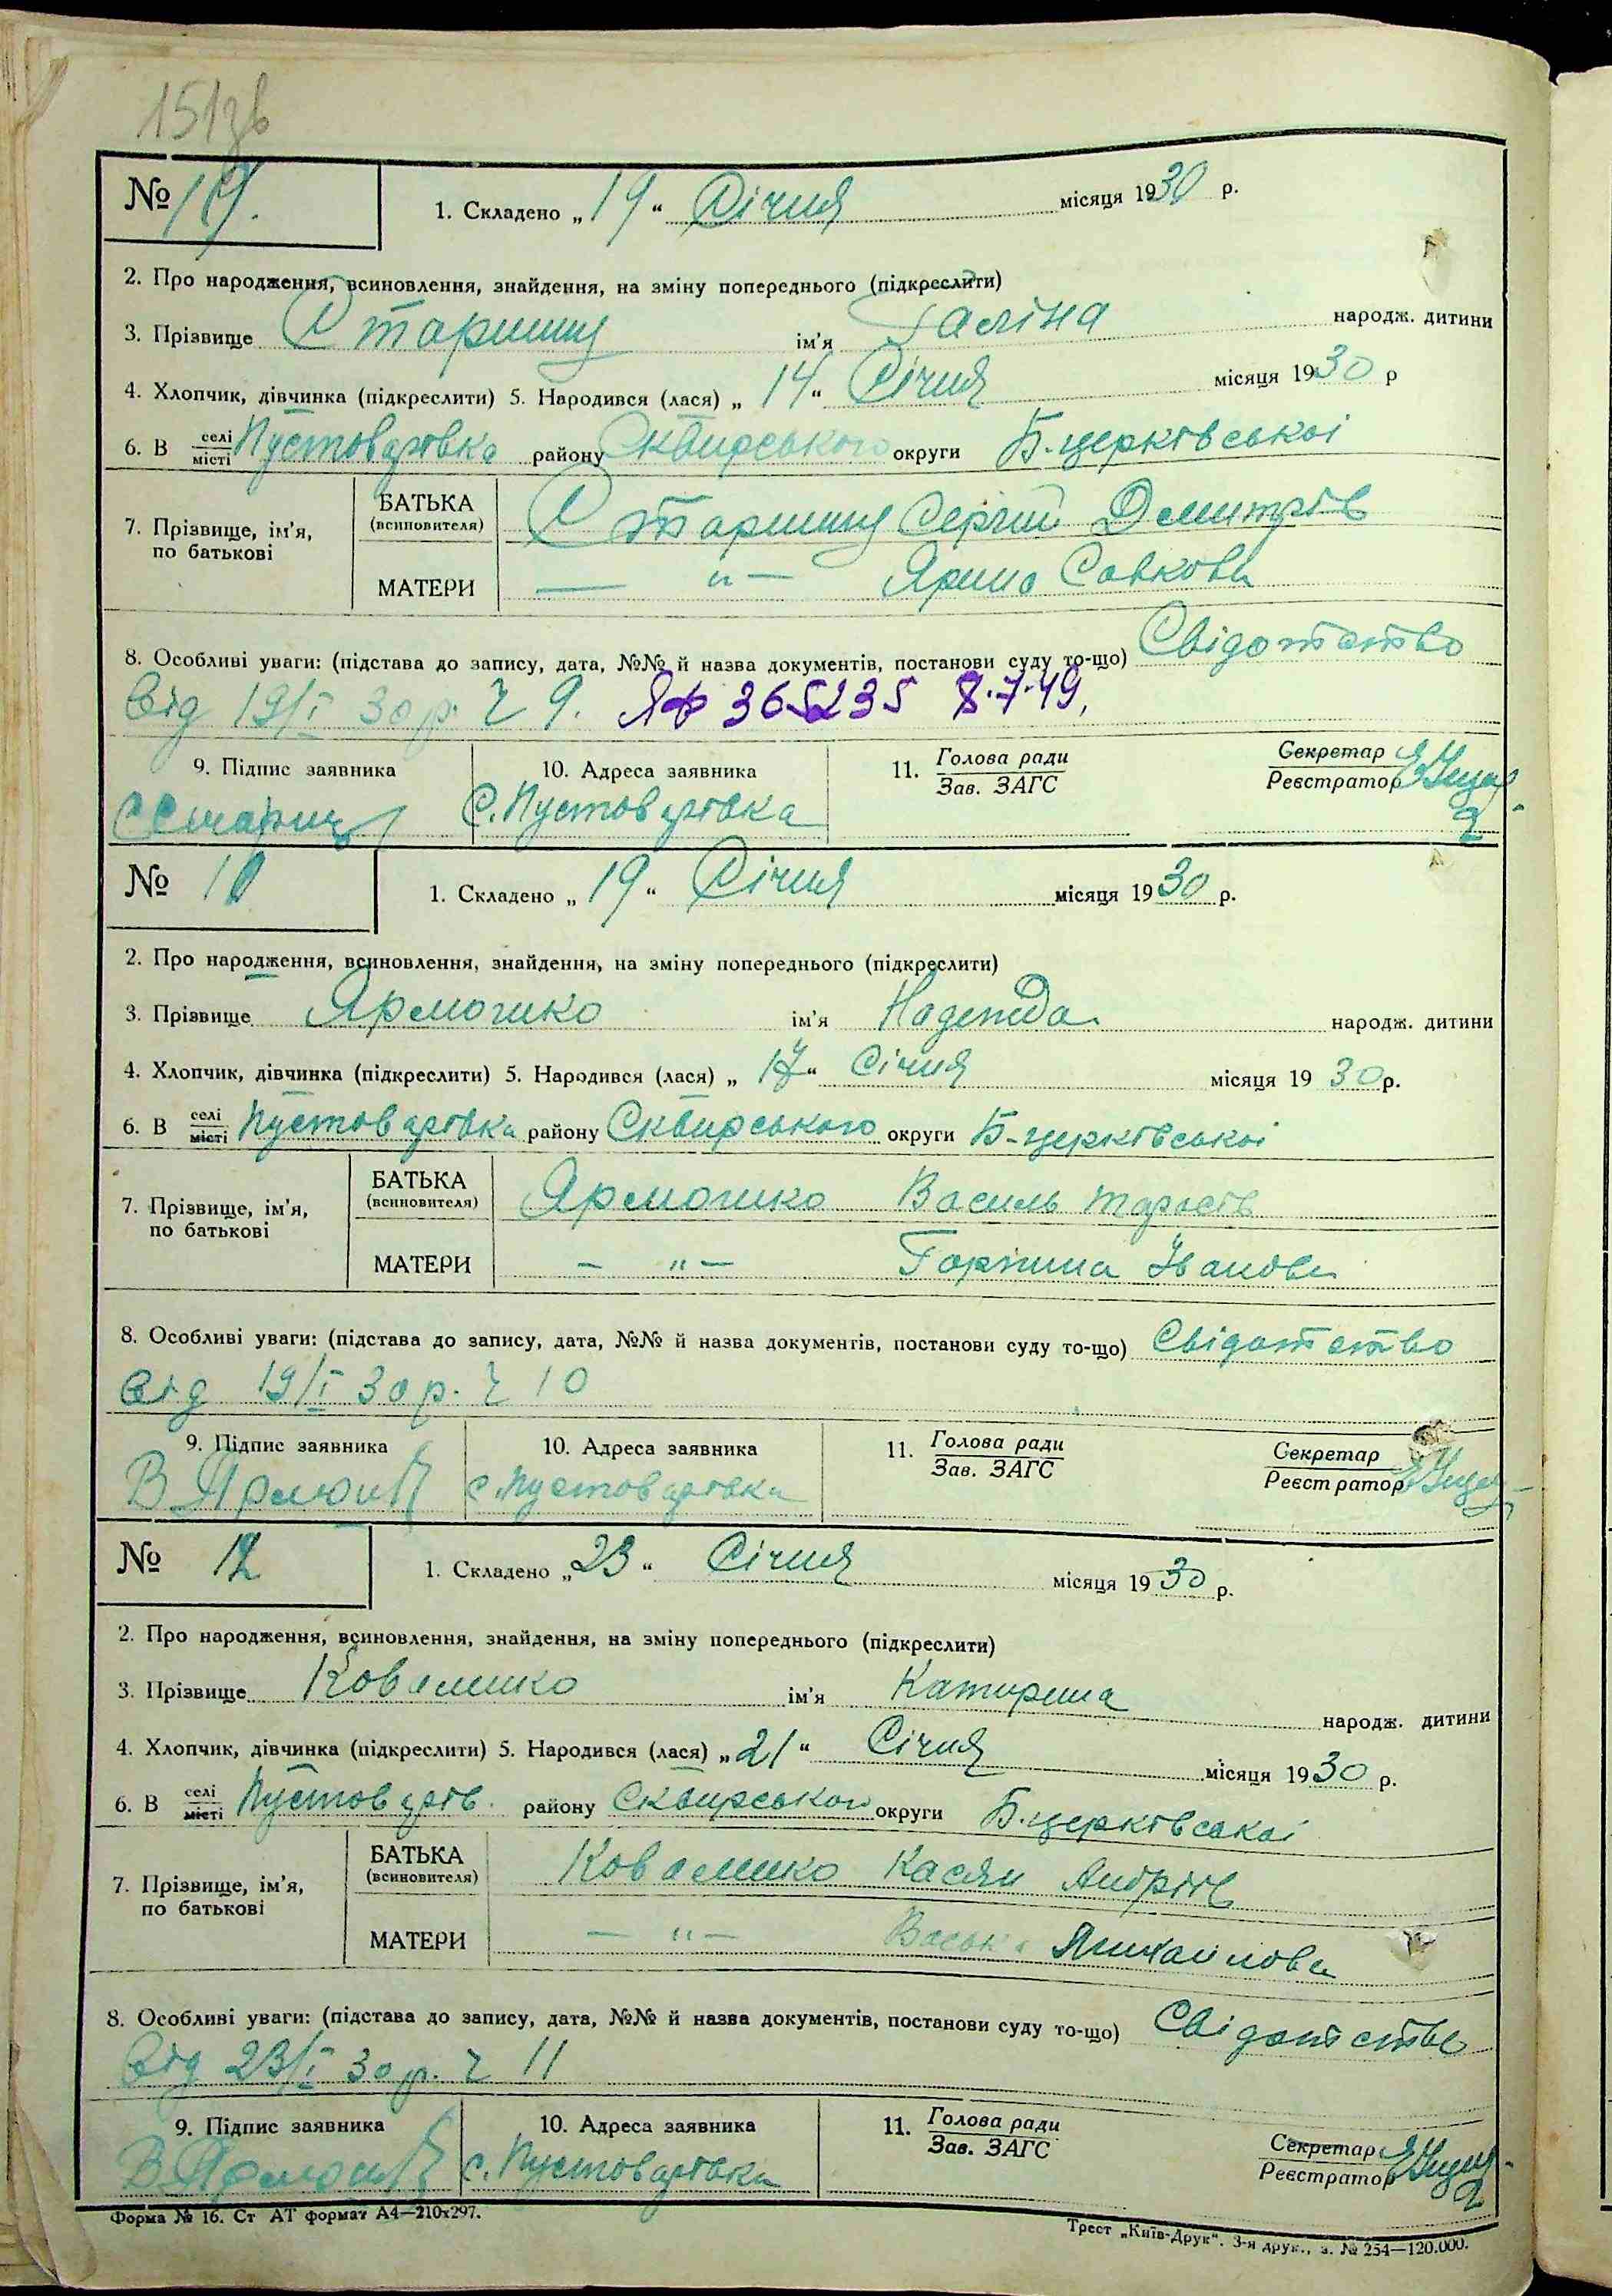 151зв
№ 19.
1. Складено „19“ Січня місяця 1930 р.
2. Про народження, всиновлення, знайдення, на зміну попереднього (підкреслити)
3. Прізвище Старишиу ім'я Галіна народж. дитини
4. Хлопчик, дівчинка (підкреслити) 5. Народився (лася) „14“ Січня місяця 1930 р
6. В селі місті Пустоварівка району Сквирського округи Б-церківської
7. Прізвище, ім'я, по батькові
БАТЬКА (всиновителя) Сергій Демитрів
МАТЕРИ — „ — Савкова
8. Особливі уваги: (підстава до запису, дата, №№ й назва документів, постанови суду то-що) Свідотство
від 19/I 30 р. Ч 9. ЯФ 365235 8.7.49,
9. Підпис заявника 10. Адреса заявника 11. Голова ради Зав. ЗАГС Секретар Реєстратор
с. Пустоварівка
№ 10
1. Складено „19“ Січня місяця 1930 р.
2. Про народження, всиновлення, знайдення, на зміну попереднього (підкреслити)
3. Прізвище Ярмошко ім'я Надежда народж. дитини
4. Хлопчик, дівчинка (підкреслити) 5. Народився (лася) „17“ Січня місяця 1930 р.
6. В селі місті Пустоварівка району Сквирського округи Б-церківської
7. Прізвище, ім'я, по батькові
БАТЬКА (всиновителя) Ярмошко Василь Тарасів
МАТЕРИ — „ — Горпина Іванова
8. Особливі уваги: (підстава до запису, дата, №№ й назва документів, постанови суду то-що) Свідотство
від 19/I 30 р. Ч 10
9. Підпис заявника 10. Адреса заявника 11. Голова ради Зав. ЗАГС Секретар Реєстратор
с. Пустоварівка
№ 12
1. Складено „23“ Січня місяця 1930 р.
2. Про народження, всиновлення, знайдення, на зміну попереднього (підкреслити)
3. Прізвище Коваленко ім'я Катирина народж. дитини
4. Хлопчик, дівчинка (підкреслити) 5. Народився (лася) „21“ Січня місяця 1930 р.
6. В селі місті Пустоварів. району Сквирського округи Б-церківської
7. Прізвище, ім'я, по батькові
БАТЬКА (всиновителя) Коваленко Касян Андрів
МАТЕРИ — „ — Михайлова
8. Особливі уваги: (підстава до запису, дата, №№ й назва документів, постанови суду то-що) Свідотство
від 23/I 30 р. Ч 11
9. Підпис заявника 10. Адреса заявника 11. Голова ради Зав. ЗАГС Секретар Реєстратор
с. Пустоварівка
Форма № 16. Ст АТ формат А4—210х297.
Трест „Київ-Друк“. 3-я друк., з. № 254—120.000.